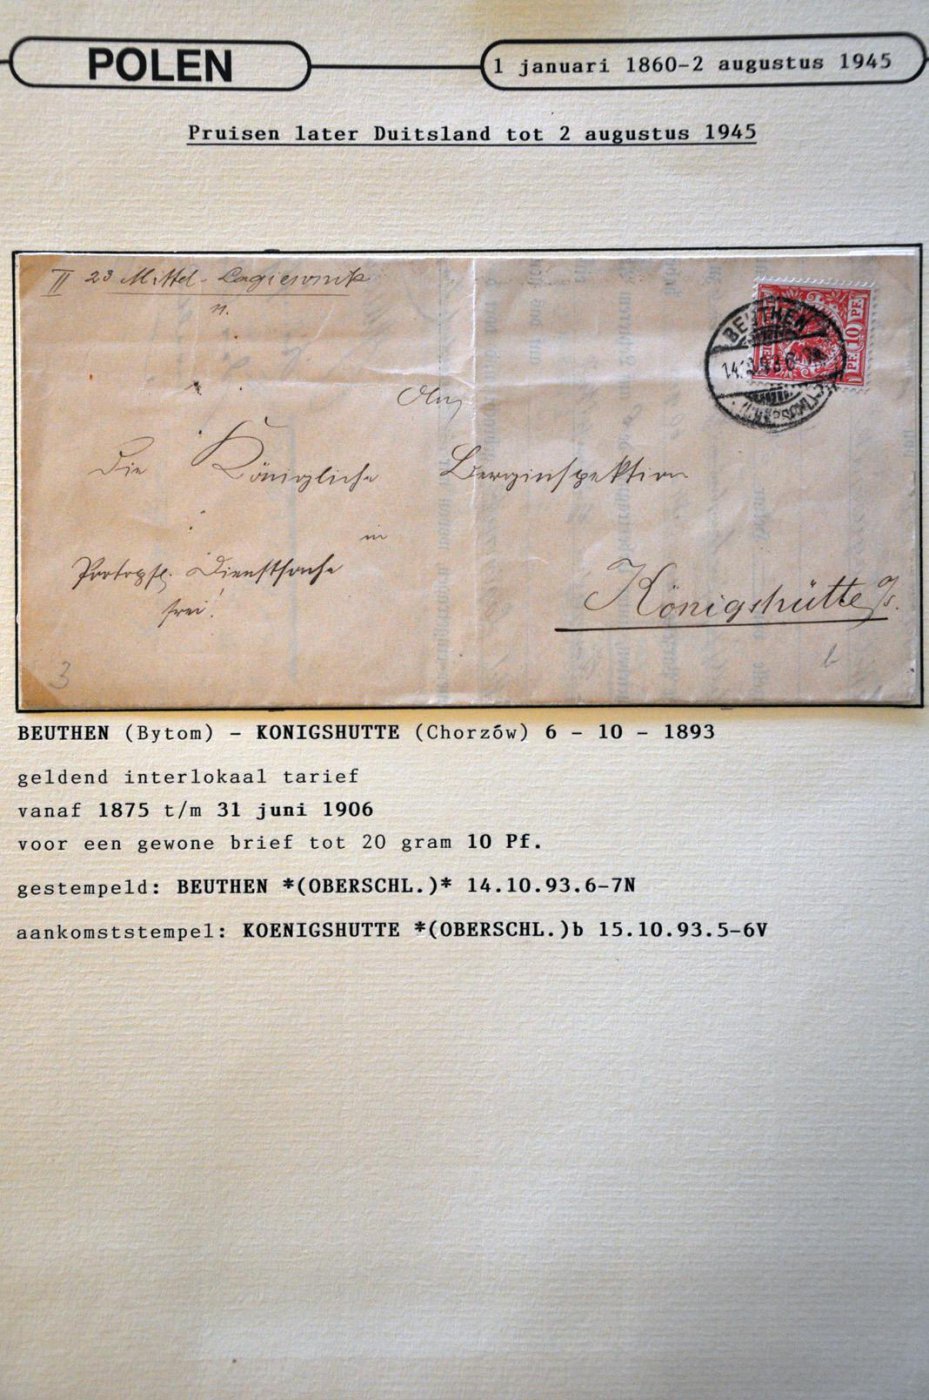 POLEN
1 januari 1860-2 augustus 1945
Pruisen later Duitsland tot 2 augustus 1945
II 23 Mittel-Lagiewnik
An
BEUTHEN
10 PF
Die Königliche Berginspektion
in
Dienstsache
frei!
Königshütte O/S.
3
BEUTHEN (Bytom) - KONIGSHUTTE (Chorzów) 6 - 10 - 1893
geldend interlokaal tarief
vanaf 1875 t/m 31 juni 1906
voor een gewone brief tot 20 gram 10 Pf.
gestempeld: BEUTHEN *(OBERSCHL.)* 14.10.93.6-7N
aankomststempel: KOENIGSHUTTE *(OBERSCHL.)b 15.10.93.5-6V